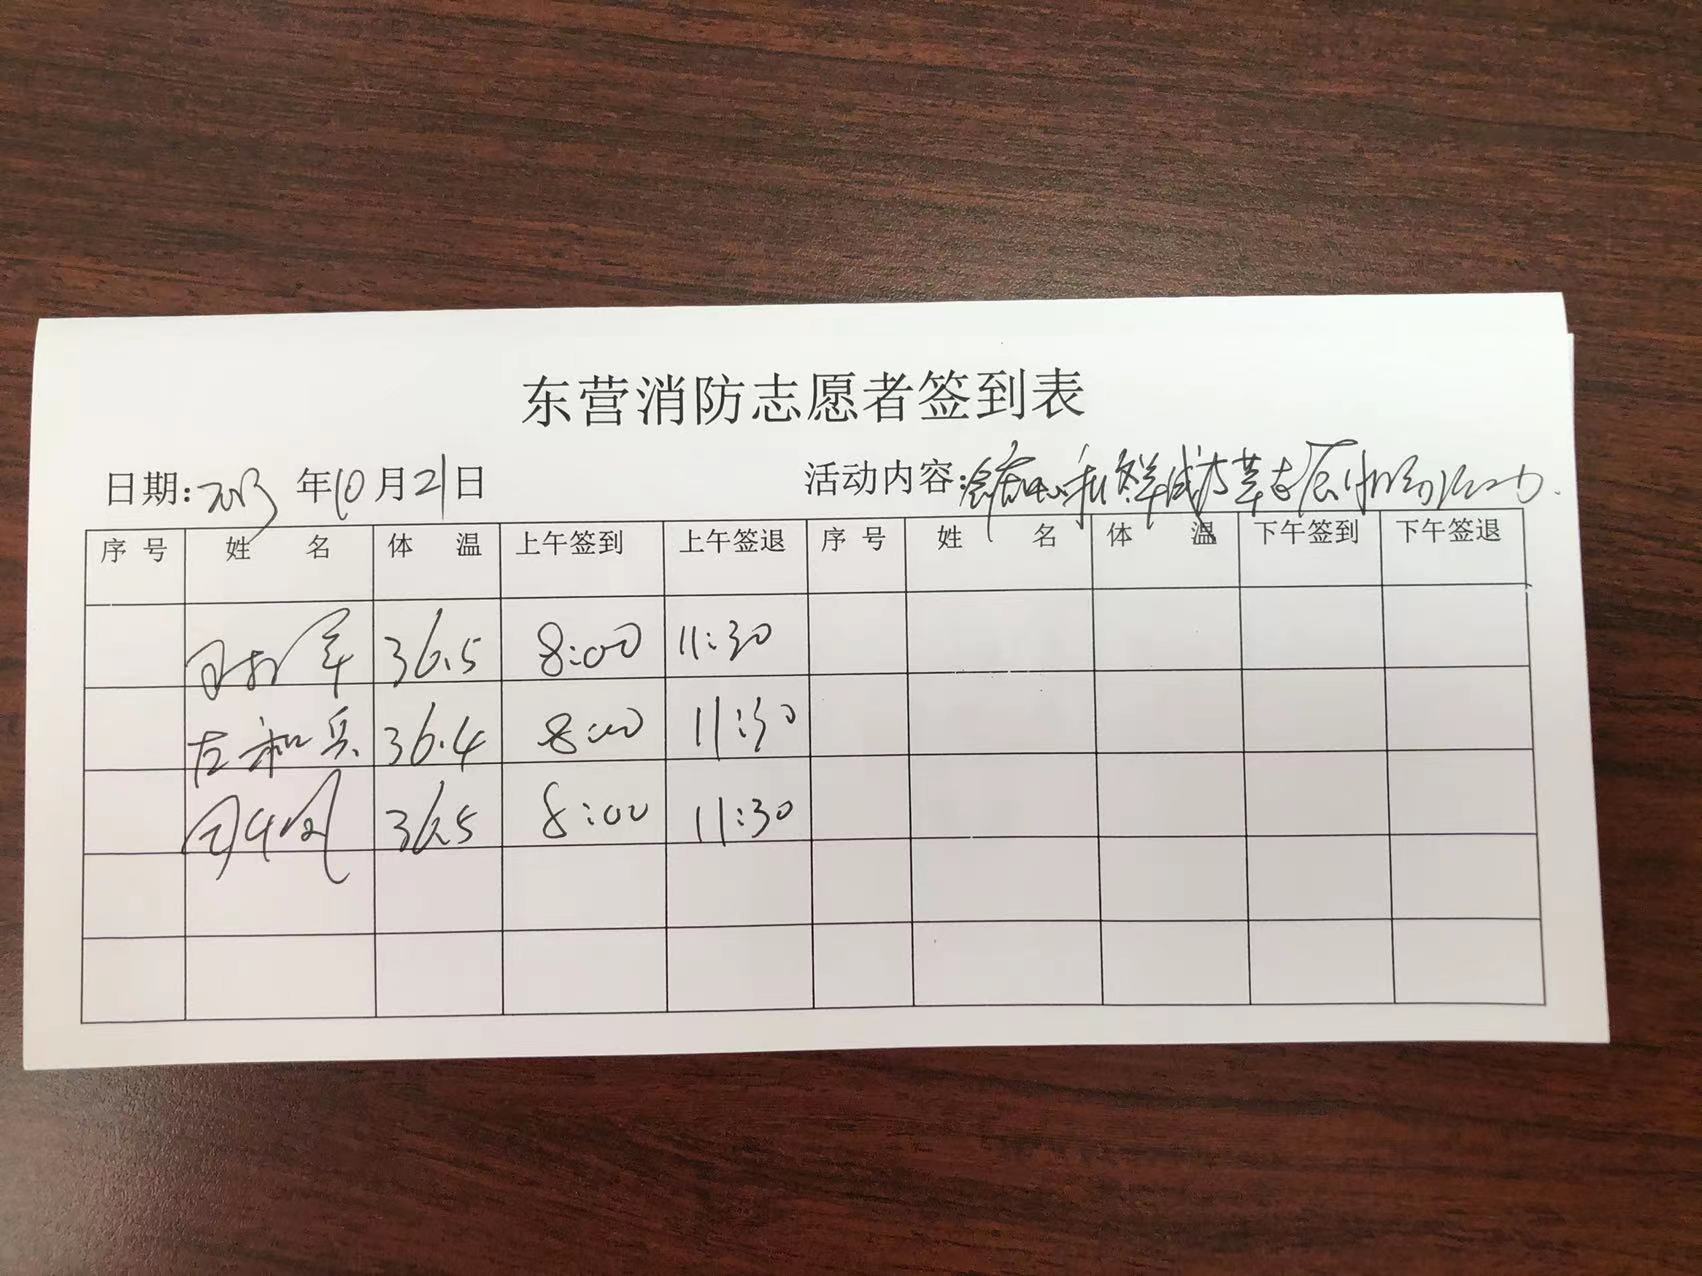 东营消防志愿者签到表
日期:2023 年10月21日 活动内容:
序号 姓 名 体 温 上午签到 上午签退 序号 姓 名 体 温 下午签到 下午签退
36.5 8:00 11:30
左和兵 36.4 8:00 11:30
36.5 8:00 11:30